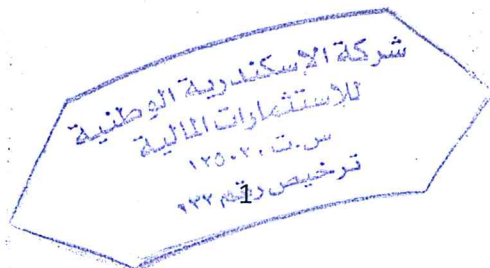 شركة الاسكندرية الوطنية
للاستثمارات المالية
س.ت ١٢٥٠٢٠
ترخيص رقم ٢٣٢
1